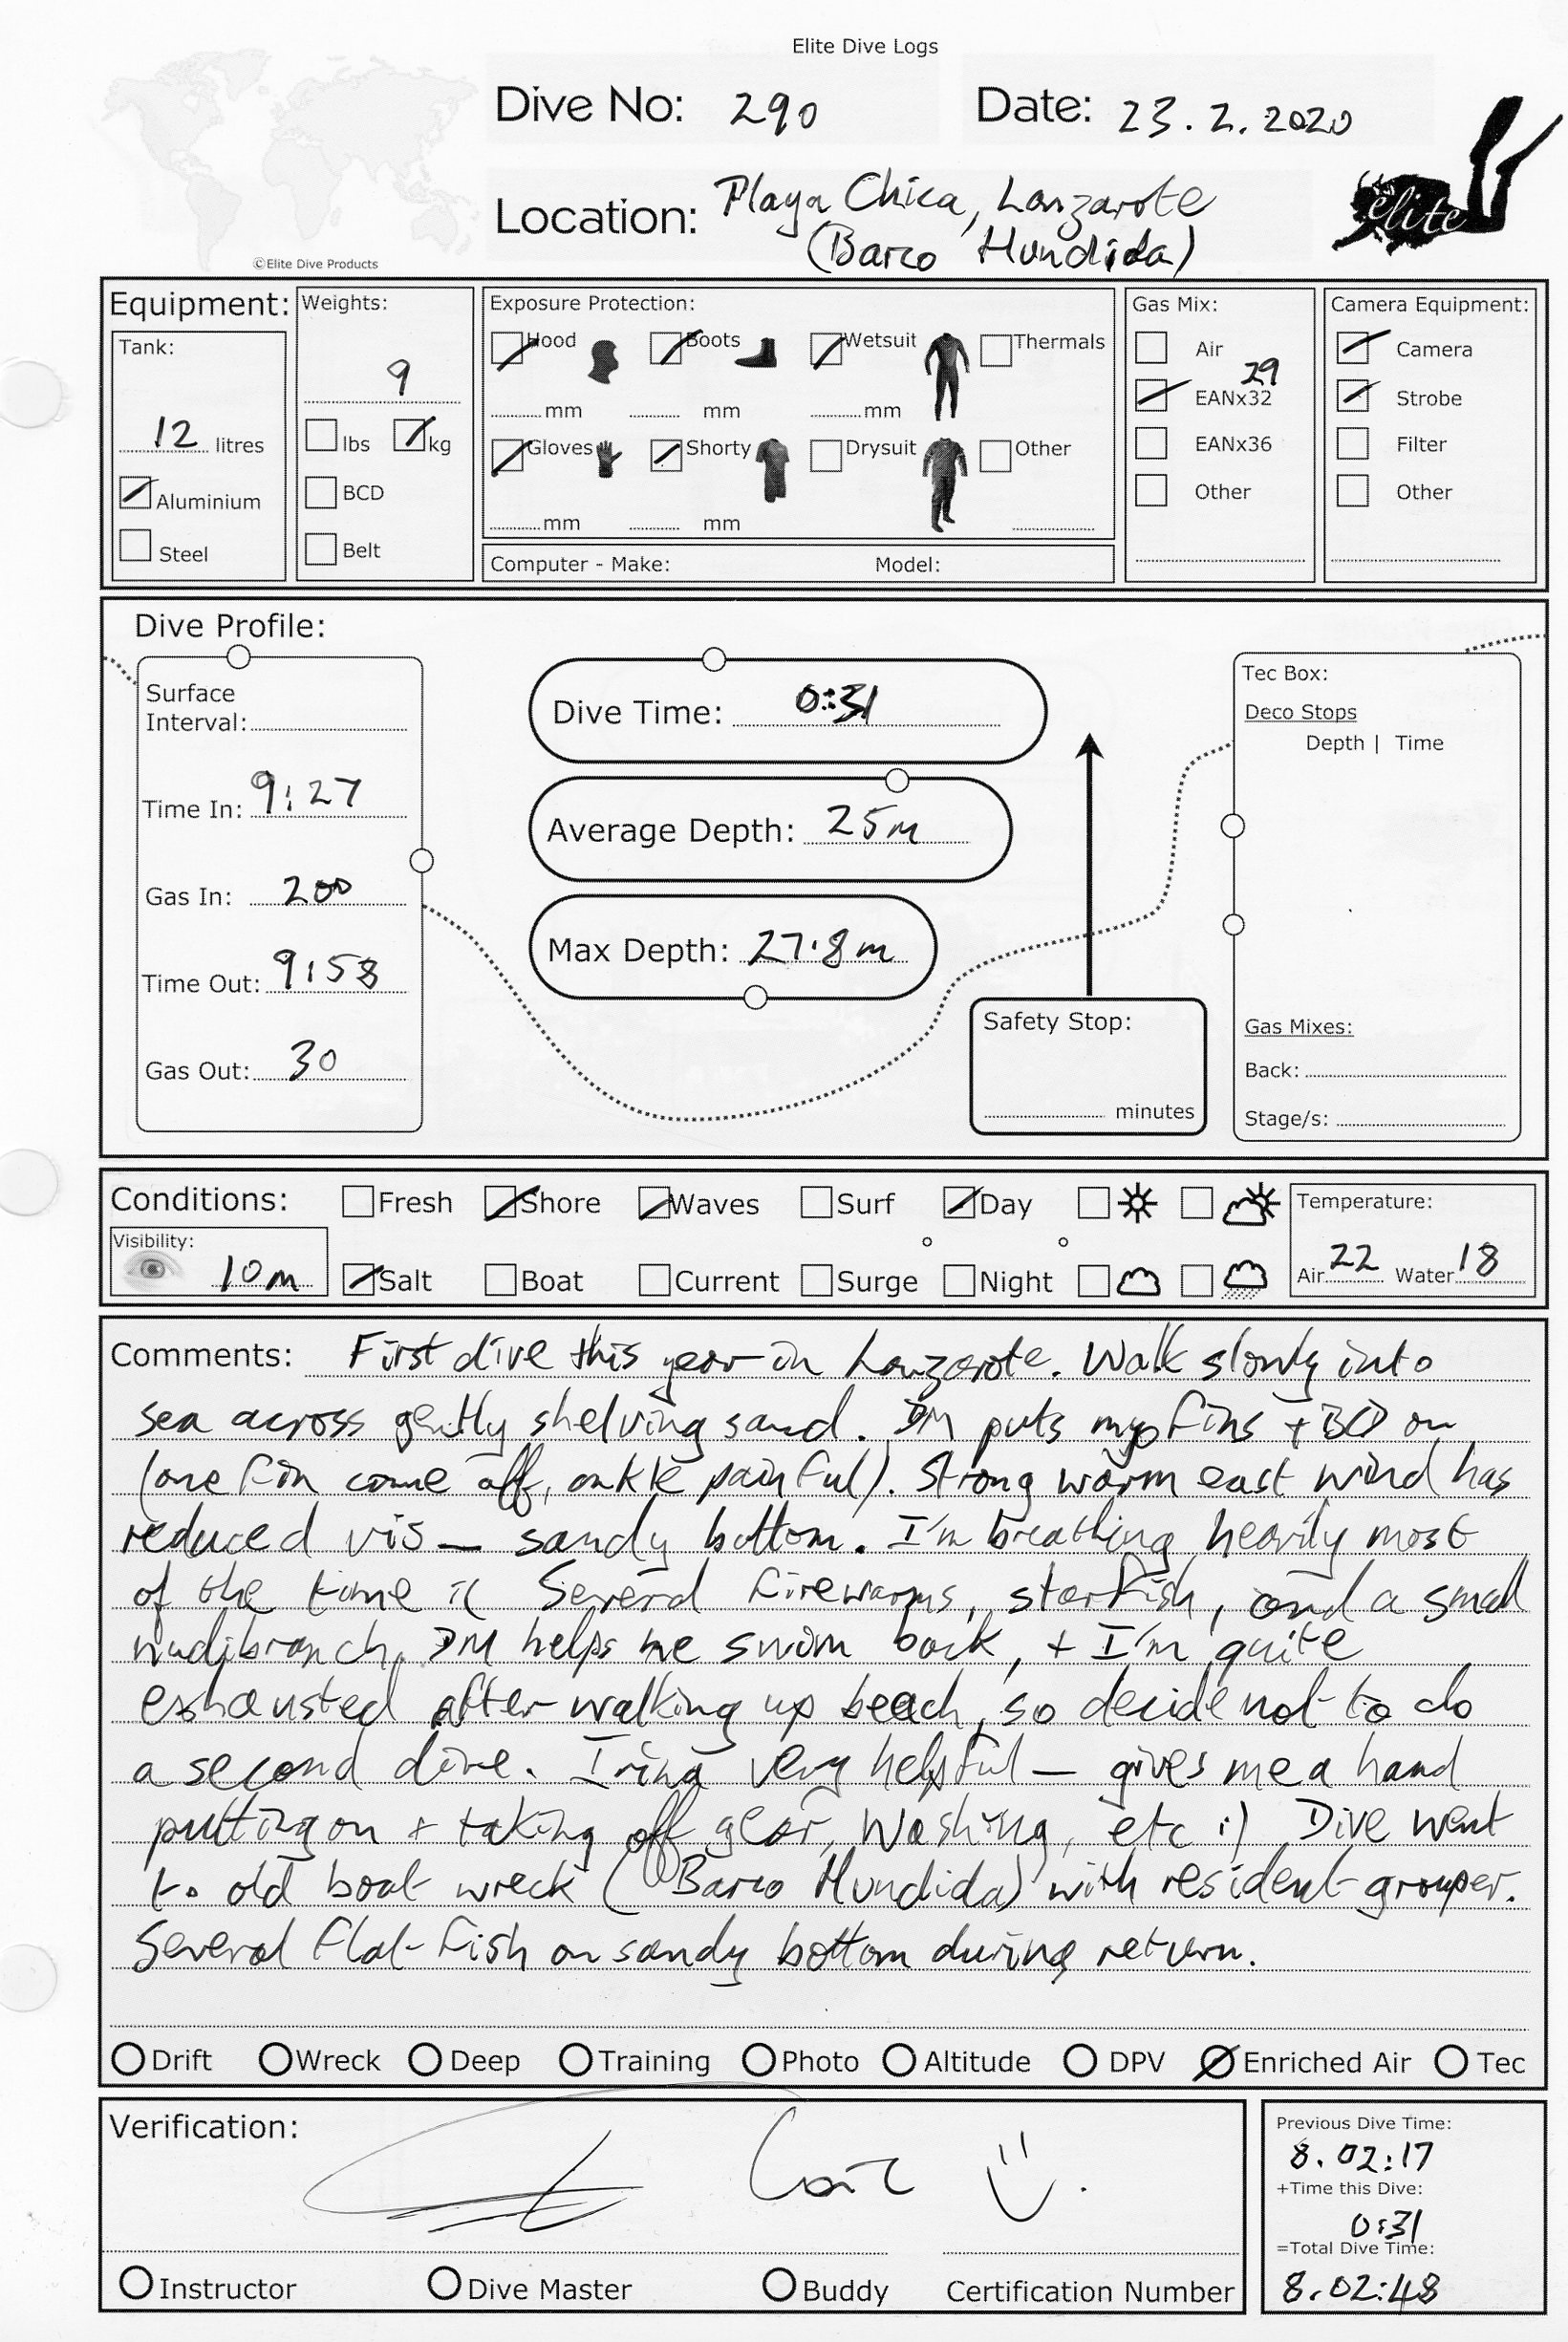 Elite Dive Logs
Dive No: 290 Date: 23.2.2020
Location: Playa Chica, Lanzarote
(Barco Hundida)
elite
©Elite Dive Products
Equipment: Weights: Exposure Protection: Gas Mix: Camera Equipment:
Tank: Hood Boots Wetsuit Thermals Air Camera
9 29
mm mm mm EANx32 Strobe
12 litres lbs kg Gloves Shorty Drysuit Other EANx36 Filter
Aluminium BCD Other Other
mm mm
Steel Belt Computer - Make: Model:
Dive Profile:
Surface
Interval:
Time In: 9:27
Gas In: 200
Time Out: 9:58
Gas Out: 30
Dive Time: 0:31
Average Depth: 25m
Max Depth: 27.8m
Safety Stop:
minutes
Tec Box:
Deco Stops
Depth | Time
Gas Mixes:
Back:
Stage/s:
Conditions: Fresh Shore Waves Surf Day Temperature:
Visibility: 10m Salt Boat Current Surge Night Air 22 Water 18
Comments: First dive this year in Lanzarote. Walk slowly into
sea across gently shelving sand. DM puts my fins + BCD on
(one fin come off, ankle painful). Strong warm east wind has
reduced vis — sandy bottom. I'm breathing heavily most
of the time :( Several fireworms, starfish, and a small
nudibranch. DM helps me swim back, + I'm quite
exhausted after walking up beach, so decide not to do
a second dive. Irina very helpful — gives me a hand
putting on + taking off gear, washing, etc :) Dive went
to old boat wreck (Barco Hundida) with resident grouper.
Several flat-fish on sandy bottom during return.
Drift Wreck Deep Training Photo Altitude DPV Enriched Air Tec
Verification:
Instructor Dive Master Buddy Certification Number
Previous Dive Time:
8.02:17
+Time this Dive:
0:31
=Total Dive Time:
8.02:48